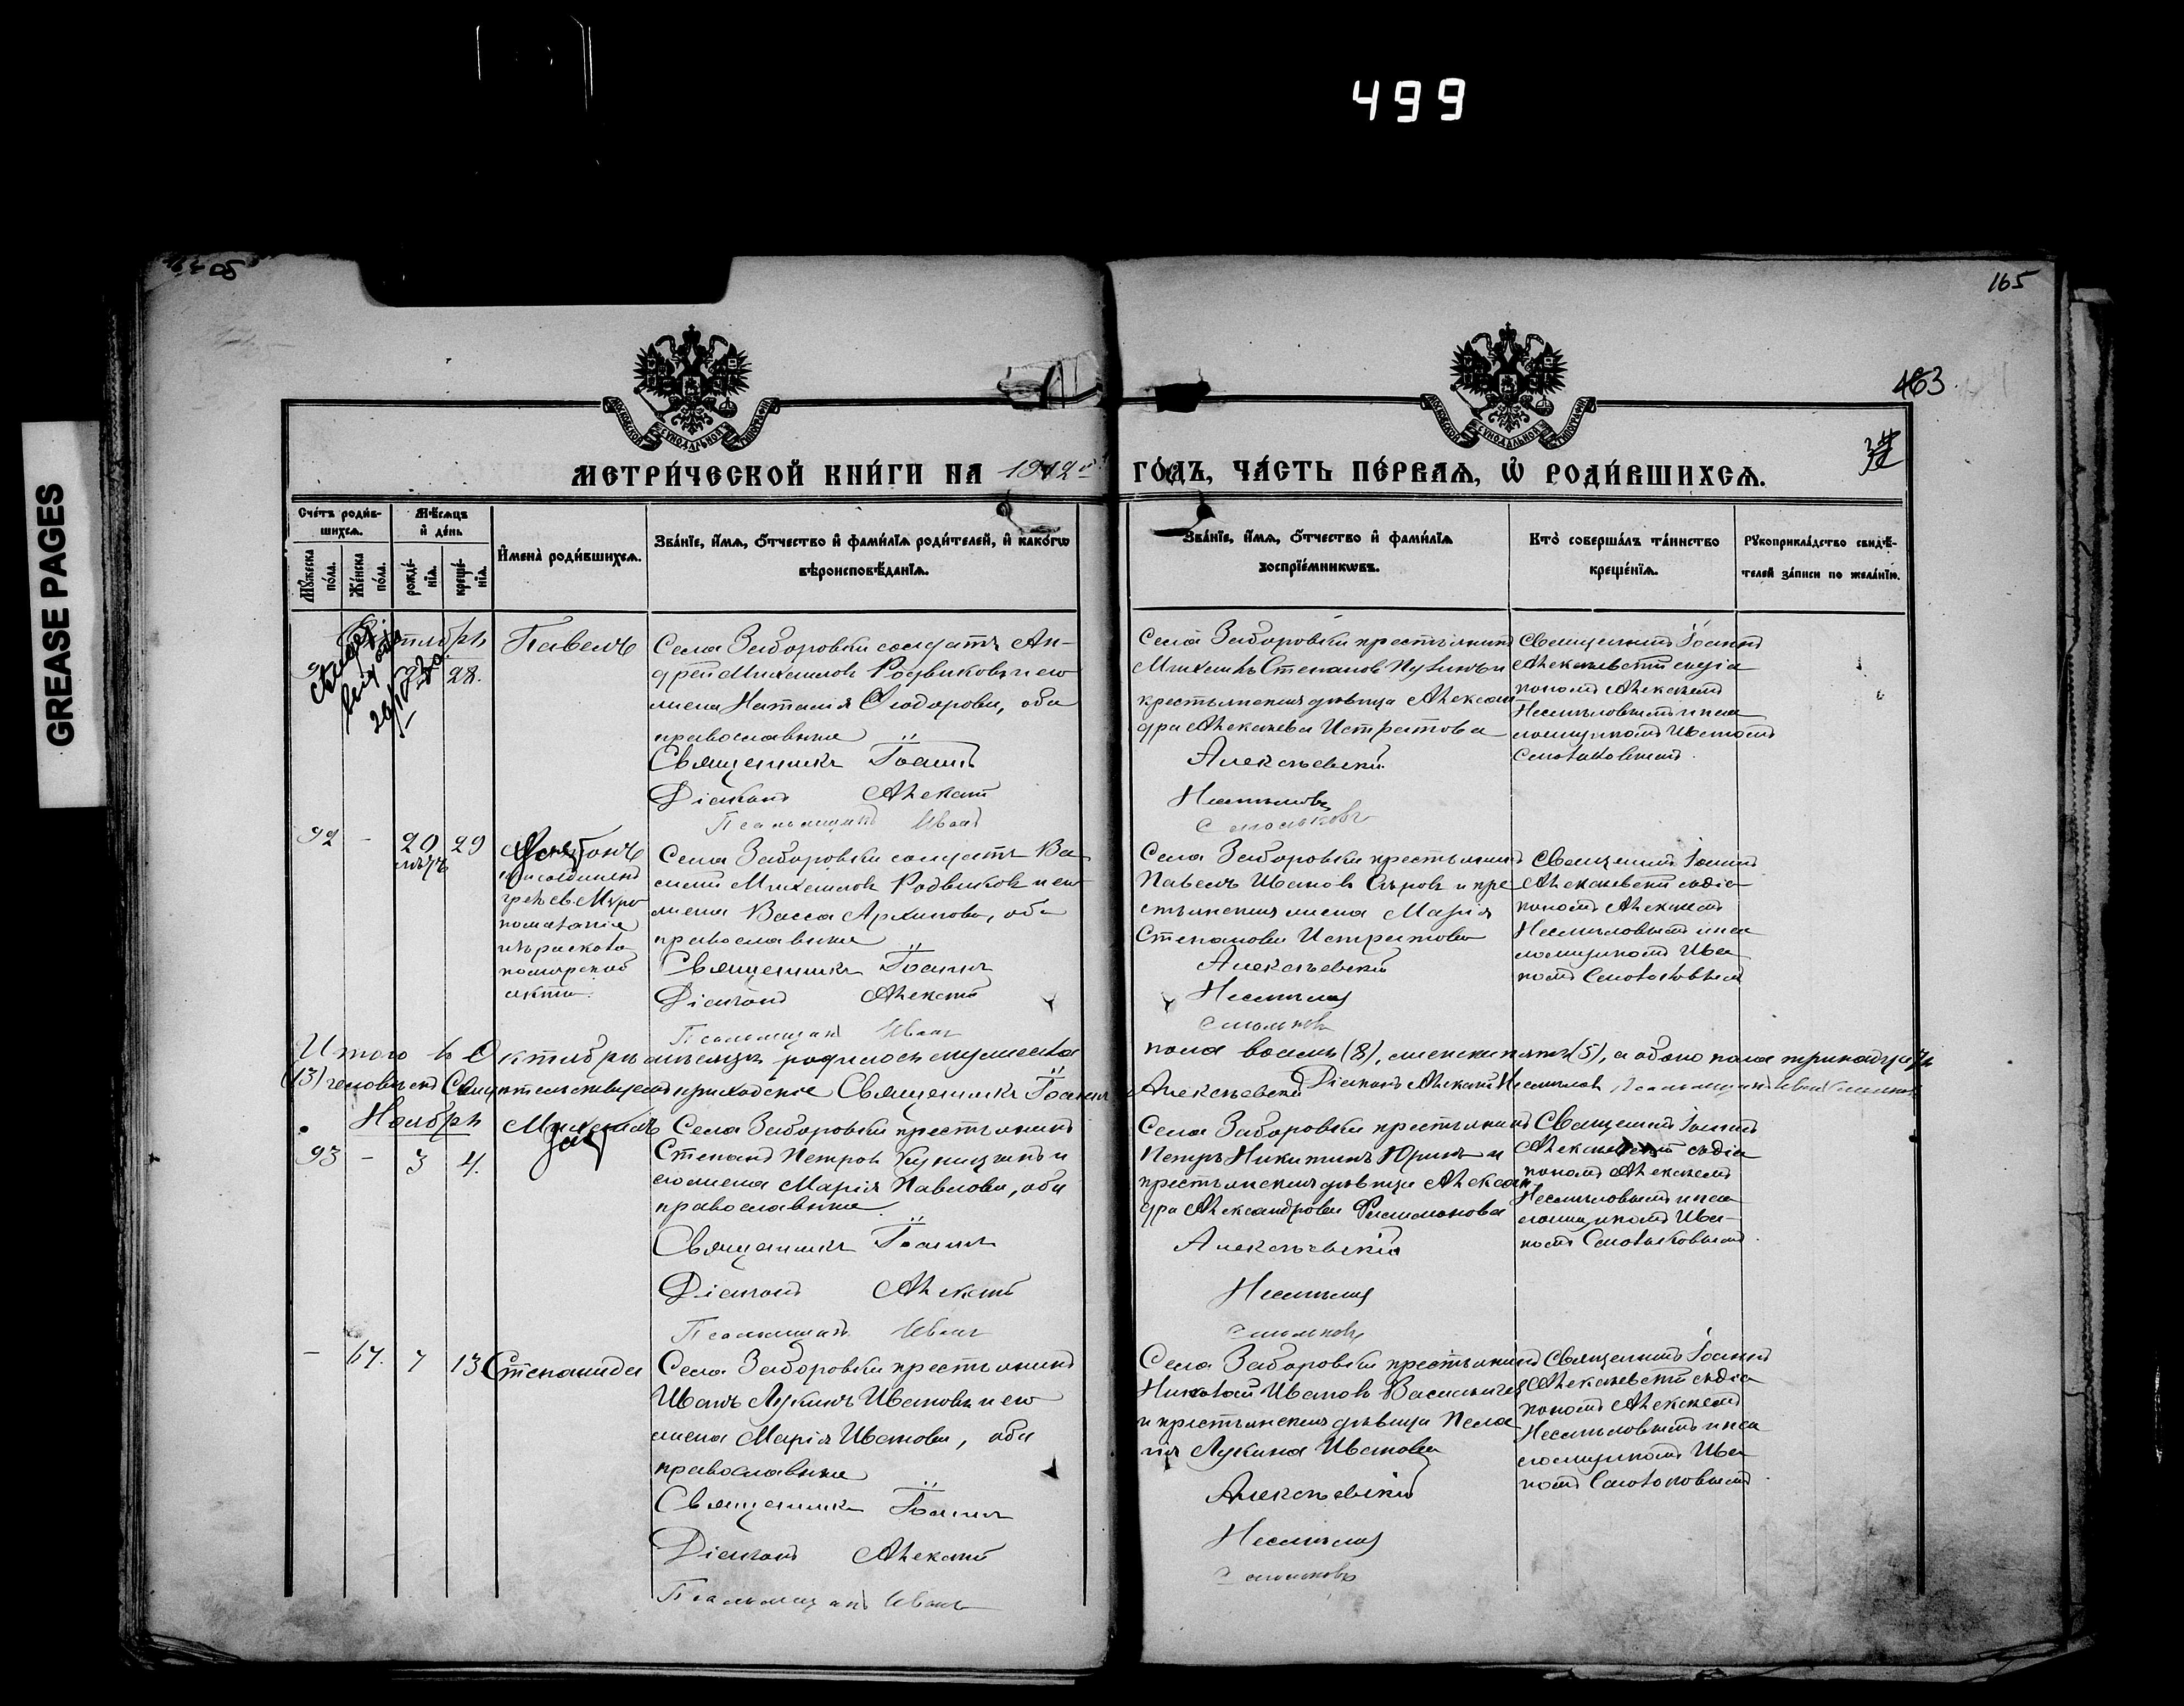 499
GREASE PAGES
165
463
МЕТРИ́ЧЕСКОЙ КНИ́ГИ НА 1912 й ГО́ДЪ, ЧА́СТЬ ПЕ́РВАЯ, Ѡ҆ РОДИ́ВШИХСЯ.
Сче́тъ роди́вшихся.
Мѣ́сяцъ и҆ де́нь
И҆мена̀ роди́вшихся.
Зва́нїе, и҆́мя, ѻ҆́тчество и҆ фами́лїя роди́телей, и҆ како́гѡ вѣроисповѣ́данїя.
Мꙋ́жеска по́ла.
Же́нска по́ла.
рожде́нїя.
креще́нїя.
Зва́нїе, и҆́мя, ѻ҆́тчество и҆ фами́лїя воспрїе́мникѡвъ.
Кто̀ соверша́лъ та́инство креще́нїя.
Рꙋкоприкла́дство свидѣ́телей за́писи по жела́нїю.
Октябрь
28.
Павелъ
Села Заборовки солдатъ Ан-
дрей Михаиловъ Родвиковъ и его
жена Наталія Ѳеодорова, оба
православные
Священникъ Іоаннъ
Діаконъ Алексій
Псаломщикъ Иванъ
Села Заборовки крестьянинъ
Михаилъ Степановъ и
крестьянская дѣвица Алексан
дра Алексѣева Истратова
Алексѣевскій
Несмѣловъ
Смольковъ
Священникъ Іоаннъ
Алексѣевскій съ діа
кономъ Алексѣемъ
Несмѣловымъ и пса
ломщикомъ Иваномъ
Смольковымъ.
92 - 20 29
Села Заборовки солдатъ Ва-
силій Михаиловъ Родвиковъ и его
жена Васса Архипова, оба
православные
Священникъ Іоаннъ
Діаконъ Алексій
Псаломщикъ Иванъ
Села Заборовки крестьянинъ
Павелъ Ивановъ Сѣровъ и кре
стьянская жена Марія
Степанова Истратова
Алексѣевскій
Несмѣловъ
Смольковъ
Священникъ Іоаннъ
Алексѣевскій съ діа
кономъ Алексѣемъ
Несмѣловымъ и пса
ломщикомъ Ива
номъ Смольковымъ
Итого въ Октябрѣ мѣсяцѣ родилось мужеска пола восемь (8), женска пять (5), а обоего пола тринадцать
(13) человѣкъ Священникъ Іоаннъ Алексѣевскій Діаконъ Алексій Несмѣловъ Псаломщикъ Иванъ Смольковъ
Ноябрь
93 - 3 4.
Михаилъ
Села Заборовки крестьянинъ
Степанъ Петровъ и
его жена Марія Павлова, оба
православные.
Священникъ Іоаннъ
Діаконъ Алексій
Псаломщикъ Иванъ
Села Заборовки крестьянинъ
Петръ Никитинъ Юринъ и
крестьянская дѣвица Алексан
дра Александрова Филимонова
Алексѣевскій
Несмѣловъ
Смольковъ
Священникъ Іоаннъ
Алексѣевскій съ діа
кономъ Алексѣемъ
Несмѣловымъ и пса
ломщикомъ Ива-
номъ Смольковымъ.
- 67. 7 13
Степанида
Села Заборовки крестьянинъ
Иванъ Лукинъ Ивановъ и его
жена Марія Иванова, оба
православные
Священникъ Іоаннъ
Діаконъ Алексій
Псаломщикъ Иванъ
Села Заборовки крестьянинъ
Николай Ивановъ Васильичевъ
и крестьянская дѣвица Пела
гія Лукина Иванова
Алексѣевскій
Несмѣловъ
Смольковъ
Священникъ Іоаннъ
Алексѣевскій съ діа
кономъ Алексѣемъ
Несмѣловымъ и пса
ломщикомъ Ива
номъ Смольковымъ.